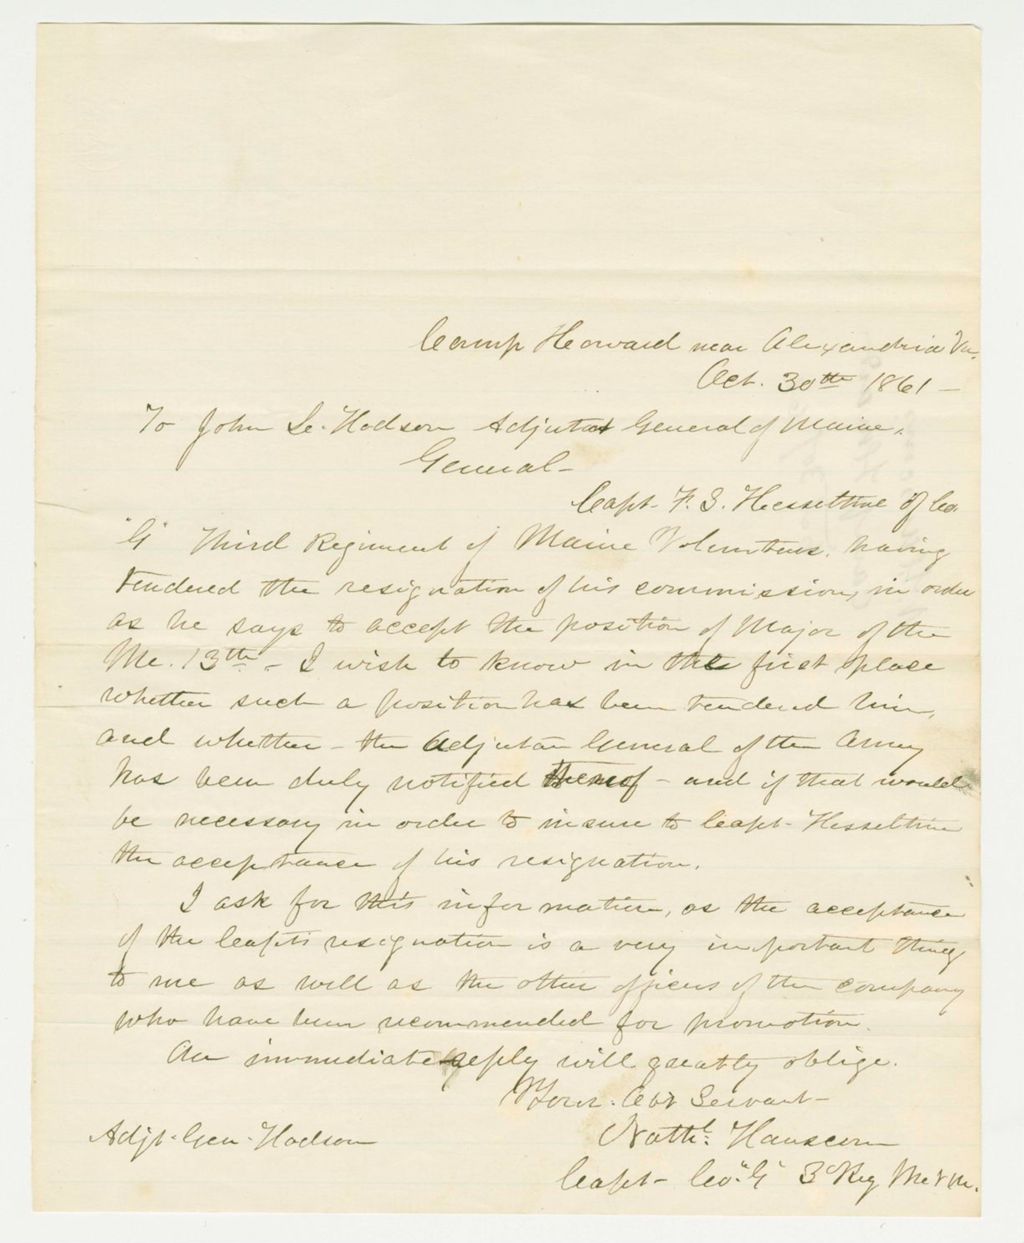 Camp Howard near Alexandria Va.
Oct. 30th 1861 —
To John L. Hodsdon Adjutant General of Maine.
General —
Capt. F. S. Hesseltine of Co.
"G" Third Regiment of Maine Volunteers, having
tendered the resignation of his commission, in order
as he says to accept the position of Major of the
Me. 13th — I wish to know in the first place
whether such a position has been tendered him,
and whether — the Adjutan General of the Army
has been duly notified thereof — and if that would
be necessary in order to insure to Capt. Hesseltine
the acceptance of his resignation.
I ask for this information, as the acceptance
of the Capts resignation is a very important thing
to me as well as the other officers of the company
who have been recommended for promotion.
An immediate reply will greatly oblige.
Your. Obt Servant —
Adjt. Gen. Hodsdon
Nathl. Hanscom
Capt — Co. "G" 3d Reg Me V M.